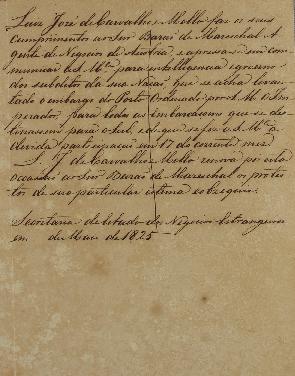 Luiz José de Carvalho e Mello faz os seus
cumprimentos ao Snr Barão de Mareschal A
gente de Negocios de Austria, e apressa-se em com
municar a S. Mce para intelligencia e governo
dos subditos da sua Nação que se acha levan
tado o embargo do Porto Ordenado por S. M. o Im
perador, para todas as embarcaçoens que se des
tinassem para o Sul, e de que se fez a S. Mce a
devida participação em 17 do corrente mez
L. J. de Carvalho e Mello renova por esta
occasião ao Snr Barão de Mareschal os protes
tos de sua particular estima e obzequio.
Secretaria de Estado dos Negocios Estrangeiros
em de Maio de 1825